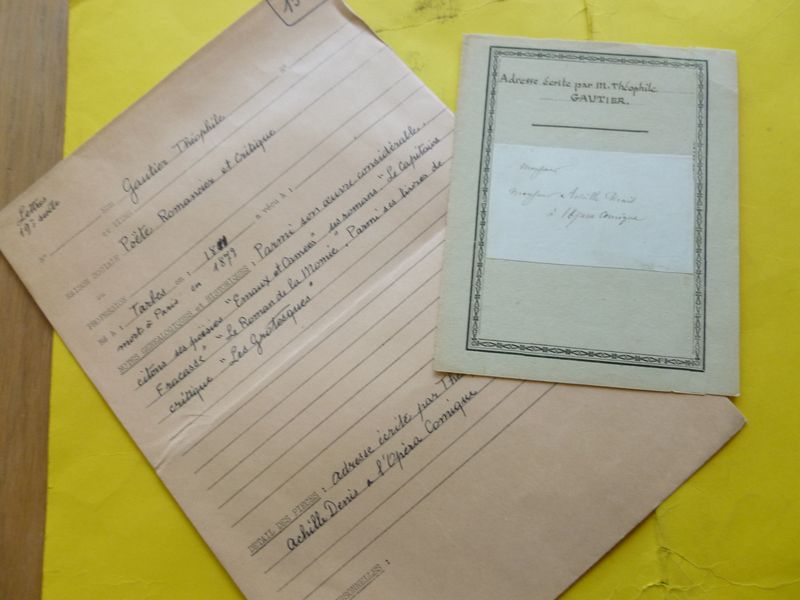 15
Lettres
19e siècle
N°
NOM Gautier Théophile N°
OU TITRE
RAISON SOCIALE Poëte Romancier et Critique
OU
PROFESSION a vécu à :
Né à : Tarbes en : 1811
mort à Paris en 1879
NOTES GENEALOGIQUES et HISTORIQUES : Parmi son œuvre considérable,
citons ses poésies "Emaux et Camées" ses romans "Le Capitaine
Fracasse" "Le Roman de la Momie". Parmi ses livres de
critique "Les Grotesques"
DETAIL DES PIECES : adresse écrite par Thé
Achille Denis à l'Opéra Comique
SONNELLES :
Adresse écrite par M. Théophile
GAUTIER.
Monsieur
Monsieur Achille Denis
à l'Opéra Comique